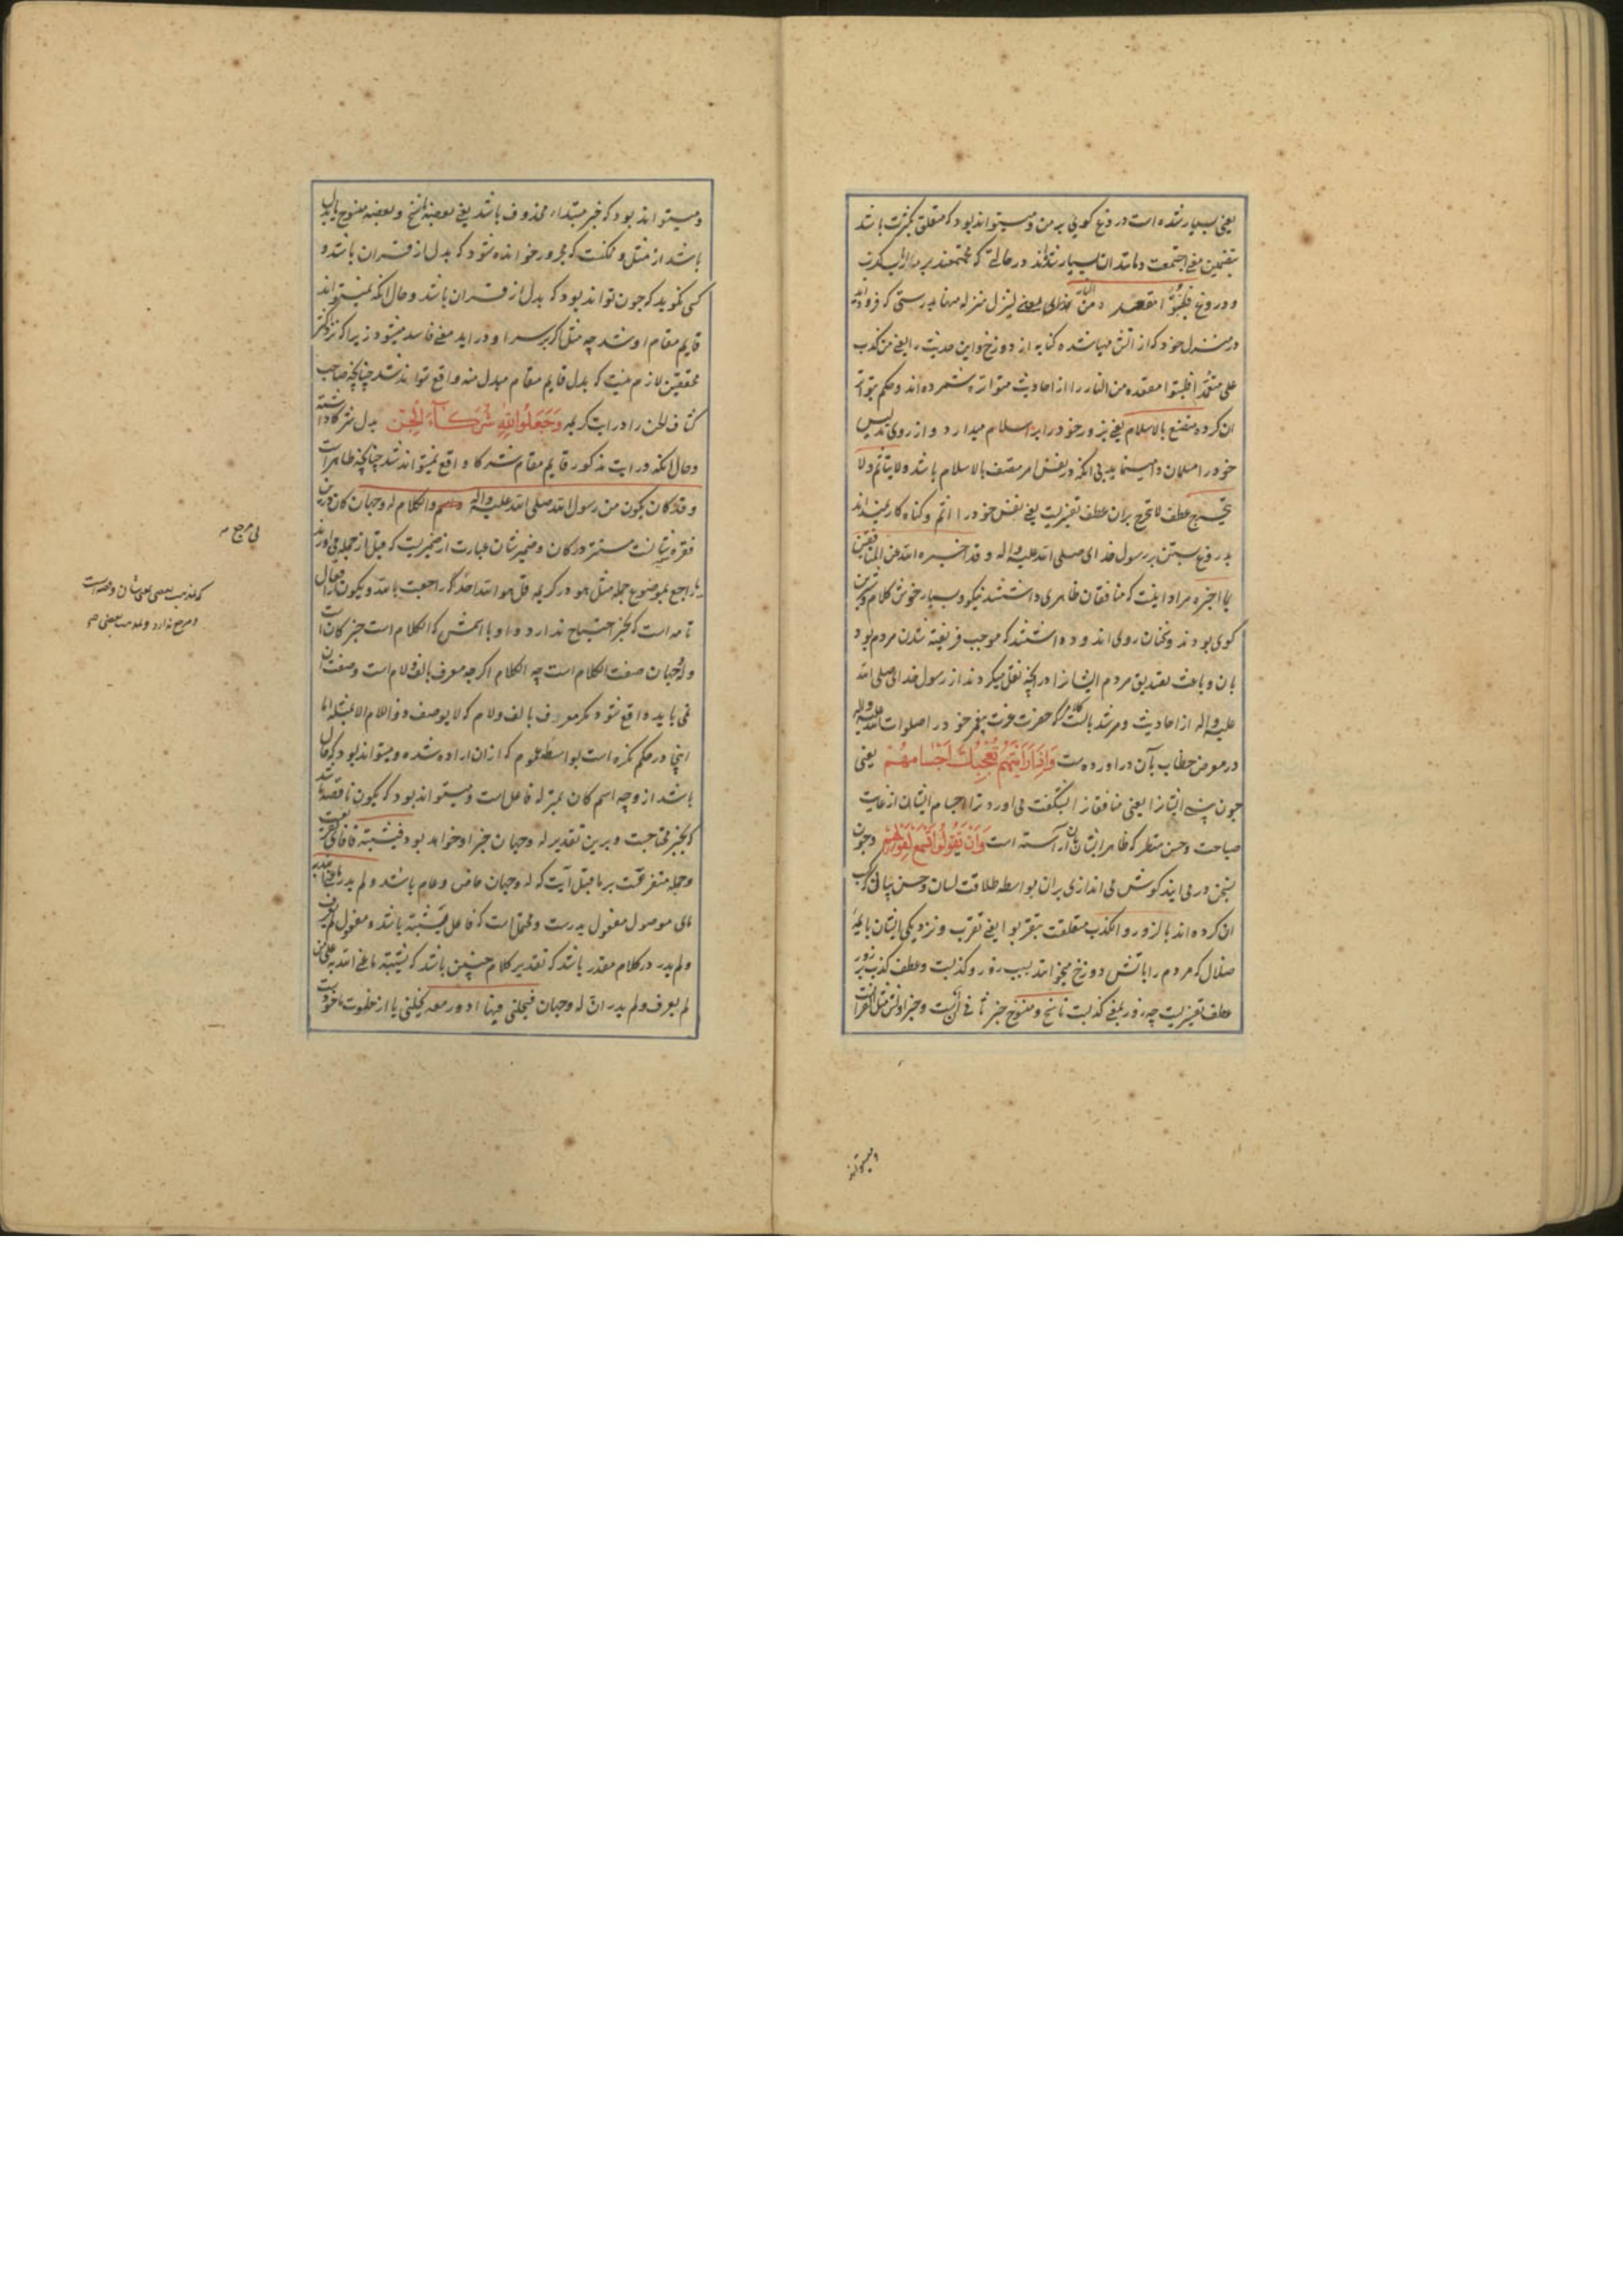 یعنی بسیار شده است دروغ کویی بر من و میتواند بود که متعلق بکثرت باشد
بتضمین معنی اجتمعت و مانند ان یعنی بسیار شده‌اند در حالتی که مجتمعند بر من
و دروغ فلیتبوّأ مقعده من النار یعنی لینزل منزله منها بدرستی که فرود
در منزل خود که از آتش مهیا شده کنایه از دوزخ و این حدیث را یعنی من کذب
علی متعمّدا فلیتبوا مقعده من النار را از احادیث متواتره شمرده‌اند و حکم بتواتر
ان کرده متصنع بالاسلام یعنی بزور خود را به اسلام میدارد و از روی تدلیس
خود را مسلمان وا مینماید بی انکه در نفس امر متصف بالاسلام باشد و لا یتأثم و لا
یتحرج عطف لا یتحرج بران عطف تفسیریست یعنی نفس خود را آثم و کناه کار نمیداند
بدروغ بستن بر رسول خدای صلی الله علیه واله و قد اخبره الله عن المنافقین
بما اخبره مراد اینست که منافقان ظاهری داشتند نیکو و بسیار خوش کلام و شیرین
کوی بودند و سخنان روی اندوده داشتند که موجب فریفته شدن مردم بود
بان و باعث تصدیق مردم ایشانرا در انچه نقل میکردند از رسول خدای صلی الله
علیه واله از احادیث و مرشد باینست کلام که حضرت عزت پیغمبر خود را صلوات الله علیه واله
در معرض خطاب بآن در اورده است وَاِذَا رَاَيْتَهُمْ تُعْجِبُكَ اَجْسَامُهُمْ یعنی
چون بینی ایشانرا یعنی منافقانرا بشکفت می اورد ترا اجسام ایشان از غایت
صباحت و حسن منظر که ظاهر ایشان بان آراسته است وَاِنْ يَقُولُوا تَسْمَعْ لِقَوْلِهِمْ و چون
بسخن در می ایند کوش می اندازی بران بواسطه طلاقت لسان و حسن بیان که کسب
ان کرده‌اند بالزور و الکذب متعلقست بتقربوا یعنی تقرب و نزدیکی ایشان بائمهٔ
ضلال که مردم را باتش دوزخ میخوانند بسبب زور و کذبست و عطف کذب بر زور
عطف تفسیریست چه زور بمعنی کذبست ناسخ و منسوخ خبر ثانی انّ است و خبر اولش مثل القرانست
و میتواند
و میتواند بود که خبر مبتداء محذوف باشد یعنی بعضه ناسخ و بعضه منسوخ یا بدل
باشد از مثل و ممکنست که مجرور خوانده شود که بدل از قران باشد و
کسی نکوید که چون تواند بود که بدل از قران باشد و حال انکه نمیتواند
قایم مقام او شد چه مثل اکر بر سر او در اید معنی فاسد میشود زیرا که نزد اکثر
محققین لازم نیست که بدل قایم مقام مبدل منه واقع تواند شد چنانچه صاحب
کشاف الجن را در ایت کریمه وَجَعَلُوا لِلّٰهِ شُرَكَآءَ الْجِنَّ بدل شرکا داشته
و حال انکه در ایت مذکور قایم مقام شرکا واقع نمیتواند شد چنانچه ظاهرست
و قد کان یکون من رسول الله صلی الله علیه واله وسلم الکلام له وجهان کان درین
فقره شانست مستتر در کان و ضمیر شان عبارت از ضمیریست که قبل از جمله می اورند
راجع بمضمون جمله مثل هو در کریمه قل هو الله احد که راجعست بالله و یکون از افعال
تامه است که بخبر احتیاج ندارد و او با اسمش که الکلام است خبر کان است
و له وجهان صفت الکلام است چه الکلام اکرچه معرف بالف و لام است و صفت ان
نمی باید واقع شود مکر معرف بالف و لام که لا یوصف ذو اللام الا بمثله اما
اینجا در حکم نکره است بواسطهٔ عموم که از ان اراده شده و میتواند بود که حال
باشد از وجه اسم کان بمنزله فاعل است و میتواند بود که یکون ناقصه باشد
که بخبر محتاجست و برین تقدیر له وجهان خبر او خواهد بود فیشتبه
و جمله متفرعست بر ما قبل آیت که له وجهان خاص و عام باشد و لم یدر ما عنی الله به
مای موصول مفعول یدرست و محتمل است که فاعل فیشتبه باشد و مفعول لم یعرف
و لم یدر در کلام مقدر باشد که تقدیر کلام چنین باشد که یشتبه ما عنی الله به علی من
لم یعرف و لم یدر ان له وجهان فیخلنی فیها ادور معه یخلنی یا از خلوت ماخوذست
بی مرجع
که مذهب بعضی
و مرجع ندارد و مذهب بعضی